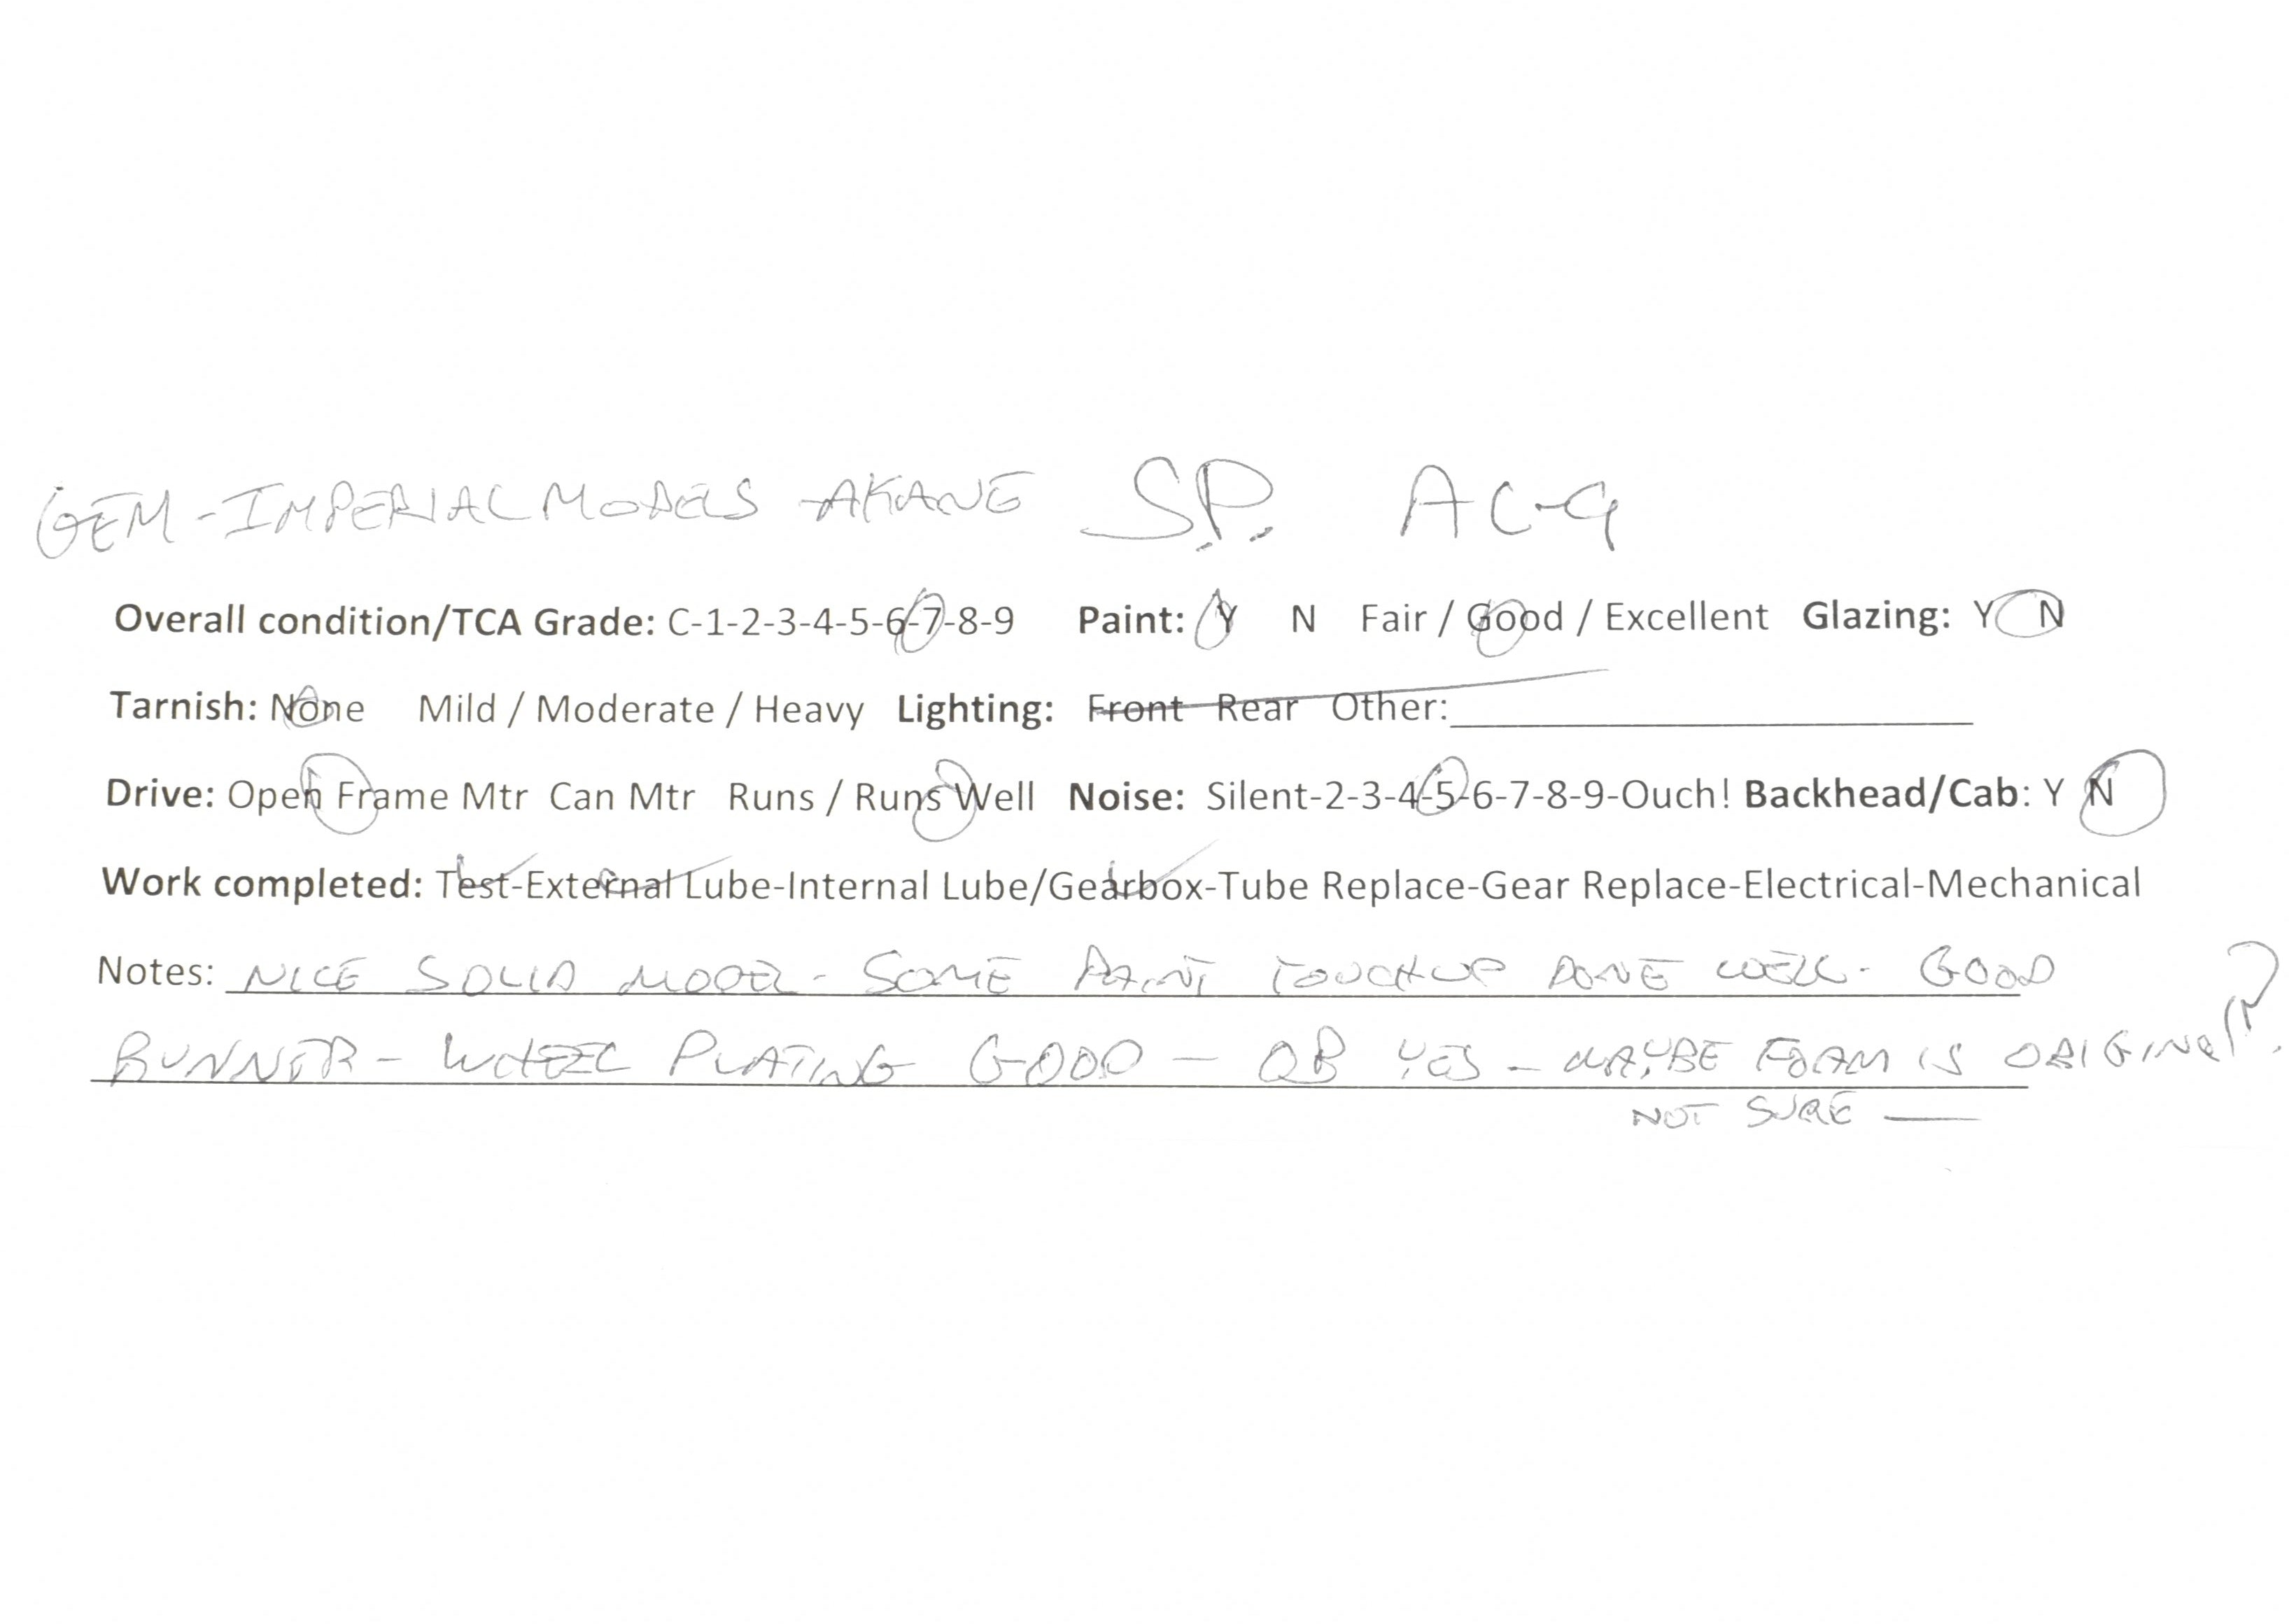 GEM - IMPERIAL MODELS - AKANE S.P. AC-9
Overall condition/TCA Grade: C-1-2-3-4-5-6-7-8-9 Paint: Y N Fair / Good / Excellent Glazing: Y N
Tarnish: None Mild / Moderate / Heavy Lighting: Front Rear Other:
Drive: Open Frame Mtr Can Mtr Runs / Runs Well Noise: Silent-2-3-4-5-6-7-8-9-Ouch! Backhead/Cab: Y N
Work completed: Test-External Lube-Internal Lube/Gearbox-Tube Replace-Gear Replace-Electrical-Mechanical
Notes: NICE SOLID MODEL - SOME PAINT TOUCHUP DONE WELL - GOOD
RUNNER - WHEEL PLATING GOOD - OB YES - MAYBE FOAM IS ORIGINAL?
NOT SURE —